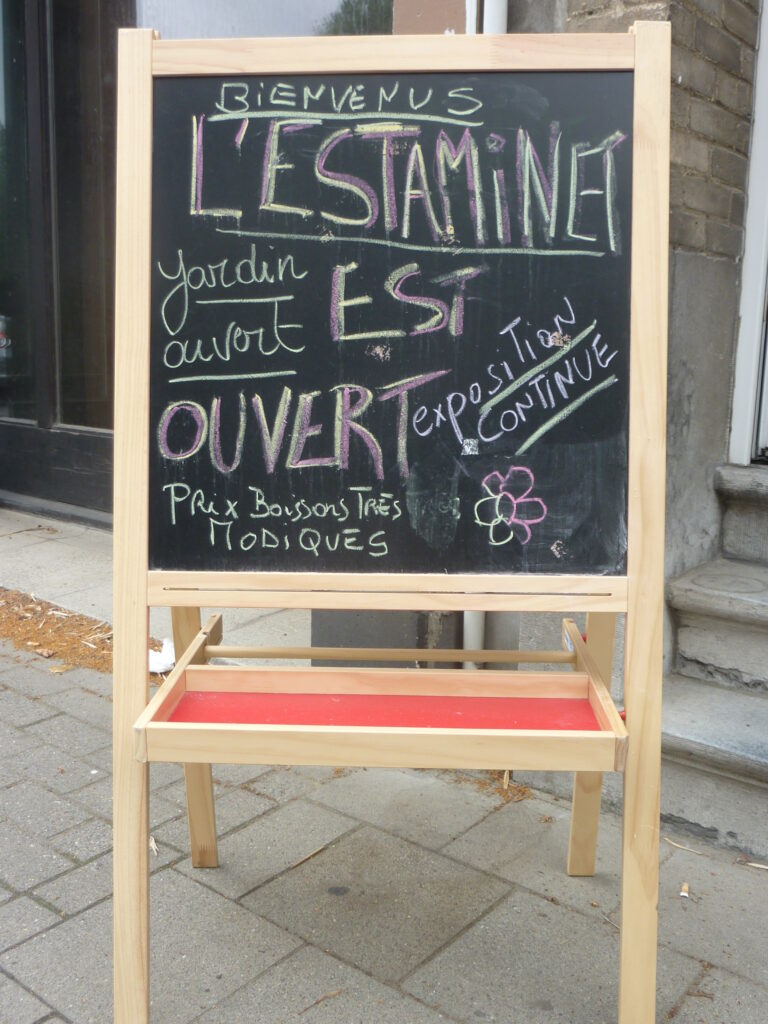 BIENVENUS
L'ESTAMiNET
yardin
ouvert
EST
exposiTION
CONTINUE
OUVERT
PRiX BoissonS TRÈS
MODiQUES